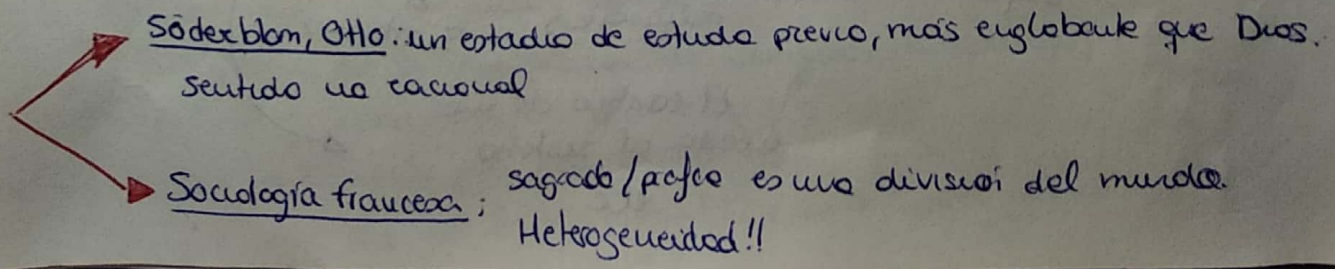 Söderblom, Otto: un estadio de estudio previo, más englobante que Dios.
sentido no racional
Sociología francesa; sagrado/profco es una división del mundo.
Heterogeneidad!!